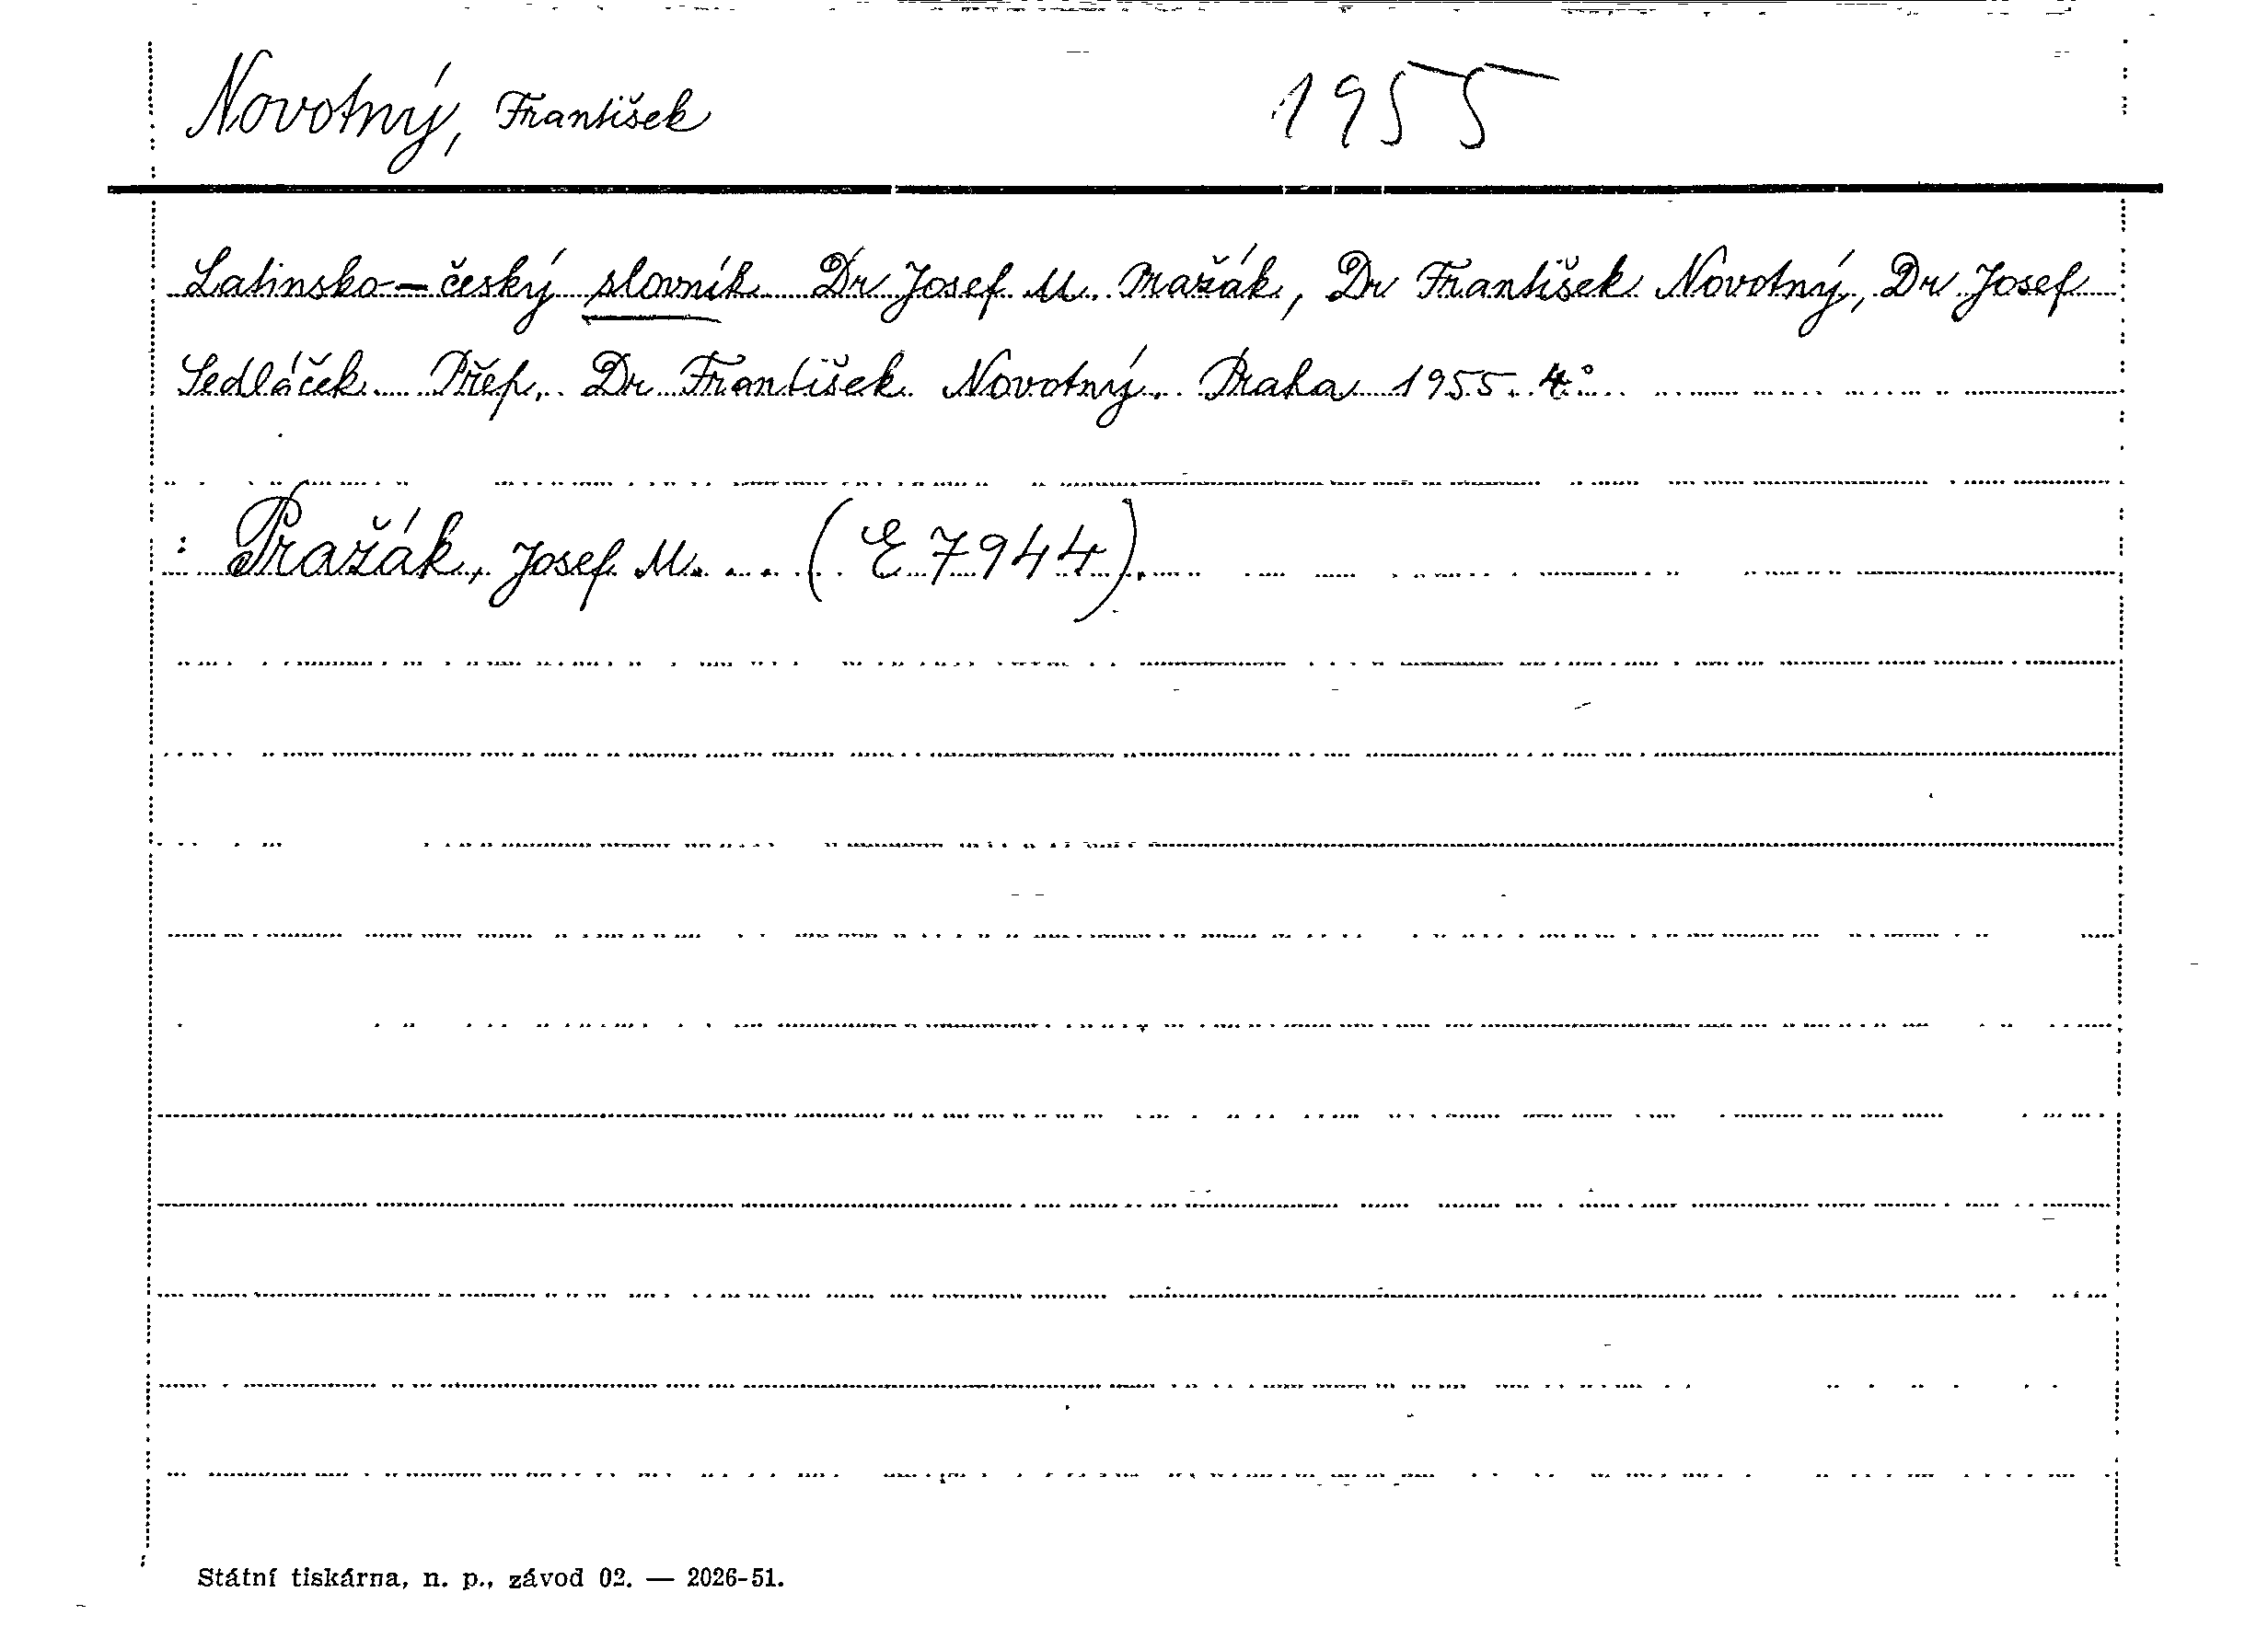 Novotný, František 1955
Latinsko-český slovník Dr Josef M. Pražák, Dr František Novotný, Dr Josef
Sedláček. Přep. Dr František Novotný. Praha 1955. 4°.
: Pražák, Josef M. .. (E 7944).
Státní tiskárna, n. p., závod 02. — 2026-51.